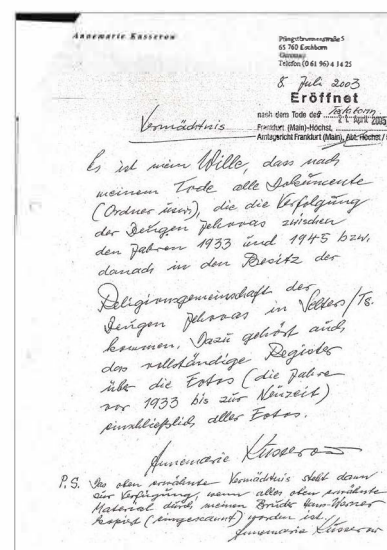 Annemarie Kusserow
Pfingstbrunnenstraße 5
65 760 Eschborn
Germany
Telefon (0 61 96) 4 14 25
8. Juli 2003
Eröffnet
nach dem Tode des
21. April 2005
Frankfurt (Main)-Höchst,
Amtsgericht Frankfurt (Main), Abt. Höchst /
Vermächtnis
Es ist mein Wille, dass nach
meinem Tode alle Dokumente
(Ordner usw), die die Verfolgung
der Zeugen Jehovas zwischen
den Jahren 1933 und 1945 bzw.
danach in den Besitz der
Religionsgemeinschaft der
Zeugen Jehovas in Selters/Ts.
kommen. Dazu gehört auch
das vollständige Register
über die Fotos (die Jahre
vor 1933 bis zur Neuzeit)
einschließlich aller Fotos.
Annemarie Kusserow
P.S. Das oben erwähnte Vermächtnis steht dann
zur Verfügung, wenn alles oben erwähnte
Material durch meinen Bruder Hans-Werner
kopiert (eingescannt) worden ist.
Annemarie Kusserow